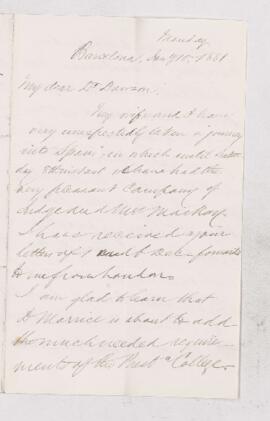 Monday
Barcelona, Jany 10. 1881
My dear Dr Dawson,
My wife and I have
very unexpectedly taken a journey
into Spain, in which until
day we have had the
very pleasant company of
Judge and Mrs MacKay.
I have received your
letter of Dec. forwarded
to me from London.
I am glad to learn that
D Morrice is about to add
so much needed require-
ments of the Presbn College.